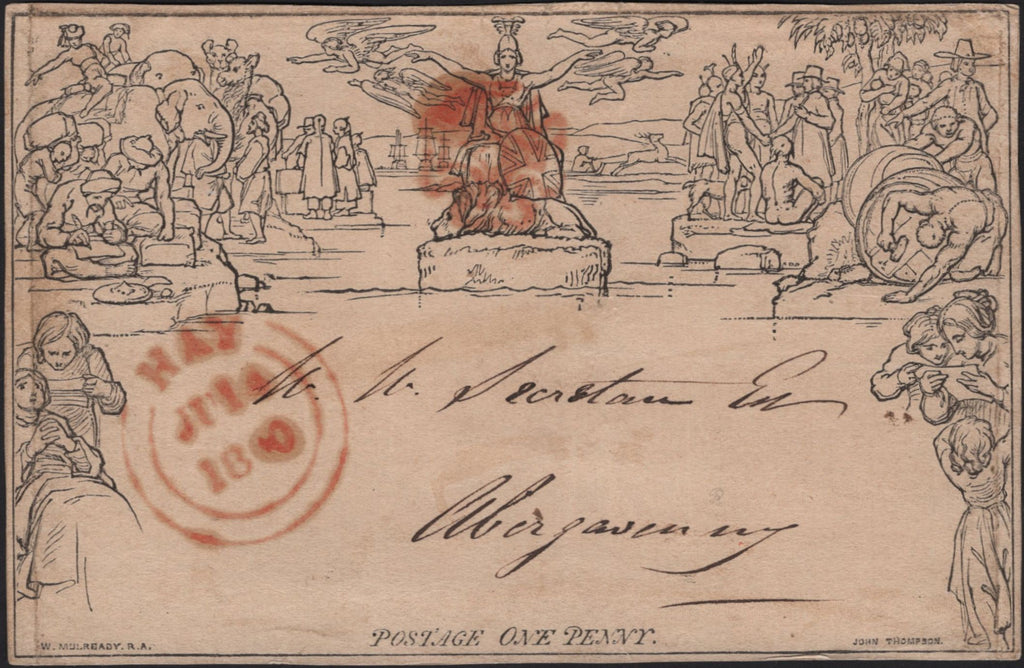 HAY
JU 14
18
W. W. Secretan Esq
Abergavenny
POSTAGE ONE PENNY.
W. MULREADY. R.A.
JOHN THOMPSON.